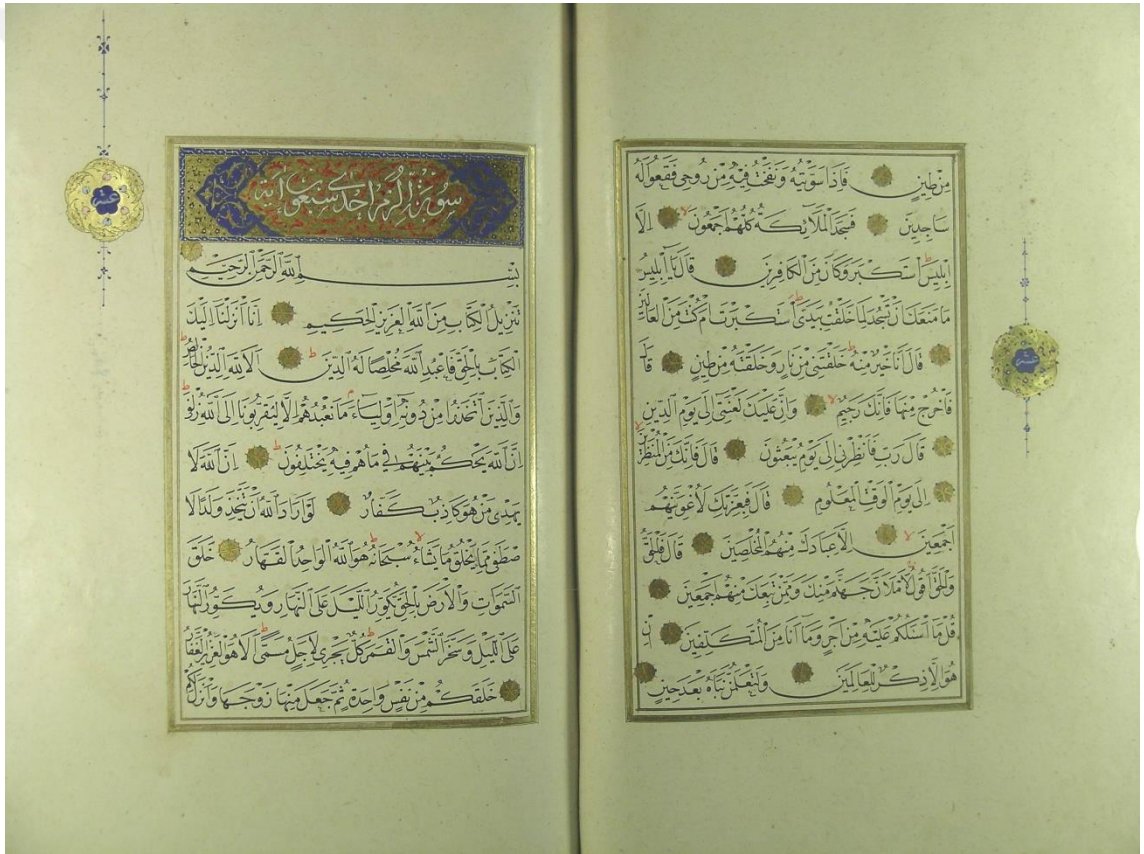 مِنْ طِينٍ فَاِذَا سَوَّيْتُهُ وَنَفَخْتُ فِيهِ مِنْ رُوحِي فَقَعُوا لَهُ
سَاجِدِينَ فَسَجَدَ الْمَلَائِكَةُ كُلُّهُمْ اَجْمَعُونَ اِلَّا
اِبْلِيسَ اسْتَكْبَرَ وَكَانَ مِنَ الْكَافِرِينَ قَالَ يَا اِبْلِيسُ
مَا مَنَعَكَ اَنْ تَسْجُدَ لِمَا خَلَقْتُ بِيَدَيَّ اَسْتَكْبَرْتَ اَمْ كُنْتَ مِنَ الْعَالِينَ
قَالَ اَنَا خَيْرٌ مِنْهُ خَلَقْتَنِي مِنْ نَارٍ وَخَلَقْتَهُ مِنْ طِينٍ قَالَ
فَاخْرُجْ مِنْهَا فَاِنَّكَ رَجِيمٌ وَاِنَّ عَلَيْكَ لَعْنَتِي اِلَى يَوْمِ الدِّينِ
قَالَ رَبِّ فَاَنْظِرْنِي اِلَى يَوْمِ يُبْعَثُونَ قَالَ فَاِنَّكَ مِنَ الْمُنْظَرِينَ
اِلَى يَوْمِ الْوَقْتِ الْمَعْلُومِ قَالَ فَبِعِزَّتِكَ لَاُغْوِيَنَّهُمْ
اَجْمَعِينَ اِلَّا عِبَادَكَ مِنْهُمُ الْمُخْلَصِينَ قَالَ فَالْحَقُّ
وَالْحَقَّ اَقُولُ لَاَمْلَاَنَّ جَهَنَّمَ مِنْكَ وَمِمَّنْ تَبِعَكَ مِنْهُمْ اَجْمَعِينَ
قُلْ مَا اَسْئَلُكُمْ عَلَيْهِ مِنْ اَجْرٍ وَمَا اَنَا مِنَ الْمُتَكَلِّفِينَ اِنْ
هُوَ اِلَّا ذِكْرٌ لِلْعَالَمِينَ وَلَتَعْلَمُنَّ نَبَاَهُ بَعْدَ حِينٍ
سُورَةُ الزُّمَرِ اِحْدَى سَبْعُونَ اٰيَة
بِسْمِ اللّٰهِ الرَّحْمٰنِ الرَّحِيمِ
تَنْزِيلُ الْكِتَابِ مِنَ اللّٰهِ الْعَزِيزِ الْحَكِيمِ اِنَّا اَنْزَلْنَا اِلَيْكَ
الْكِتَابَ بِالْحَقِّ فَاعْبُدِ اللّٰهَ مُخْلِصًا لَهُ الدِّينَ اَلَا لِلّٰهِ الدِّينُ الْخَالِصُ
وَالَّذِينَ اتَّخَذُوا مِنْ دُونِهِ اَوْلِيَاءَ مَا نَعْبُدُهُمْ اِلَّا لِيُقَرِّبُونَا اِلَى اللّٰهِ زُلْفَى
اِنَّ اللّٰهَ يَحْكُمُ بَيْنَهُمْ فِي مَا هُمْ فِيهِ يَخْتَلِفُونَ اِنَّ اللّٰهَ لَا
يَهْدِي مَنْ هُوَ كَاذِبٌ كَفَّارٌ لَوْ اَرَادَ اللّٰهُ اَنْ يَتَّخِذَ وَلَدًا لَا
صْطَفَى مِمَّا يَخْلُقُ مَا يَشَاءُ سُبْحَانَهُ هُوَ اللّٰهُ الْوَاحِدُ الْقَهَّارُ خَلَقَ
السَّمٰوَاتِ وَالْاَرْضَ بِالْحَقِّ يُكَوِّرُ الَّيْلَ عَلَى النَّهَارِ وَيُكَوِّرُ النَّهَارَ
عَلَى الَّيْلِ وَسَخَّرَ الشَّمْسَ وَالْقَمَرَ كُلٌّ يَجْرِي لِاَجَلٍ مُسَمًّى اَلَا هُوَ الْعَزِيزُ الْغَفَّارُ
خَلَقَكُمْ مِنْ نَفْسٍ وَاحِدَةٍ ثُمَّ جَعَلَ مِنْهَا زَوْجَهَا وَاَنْزَلَ لَكُمْ